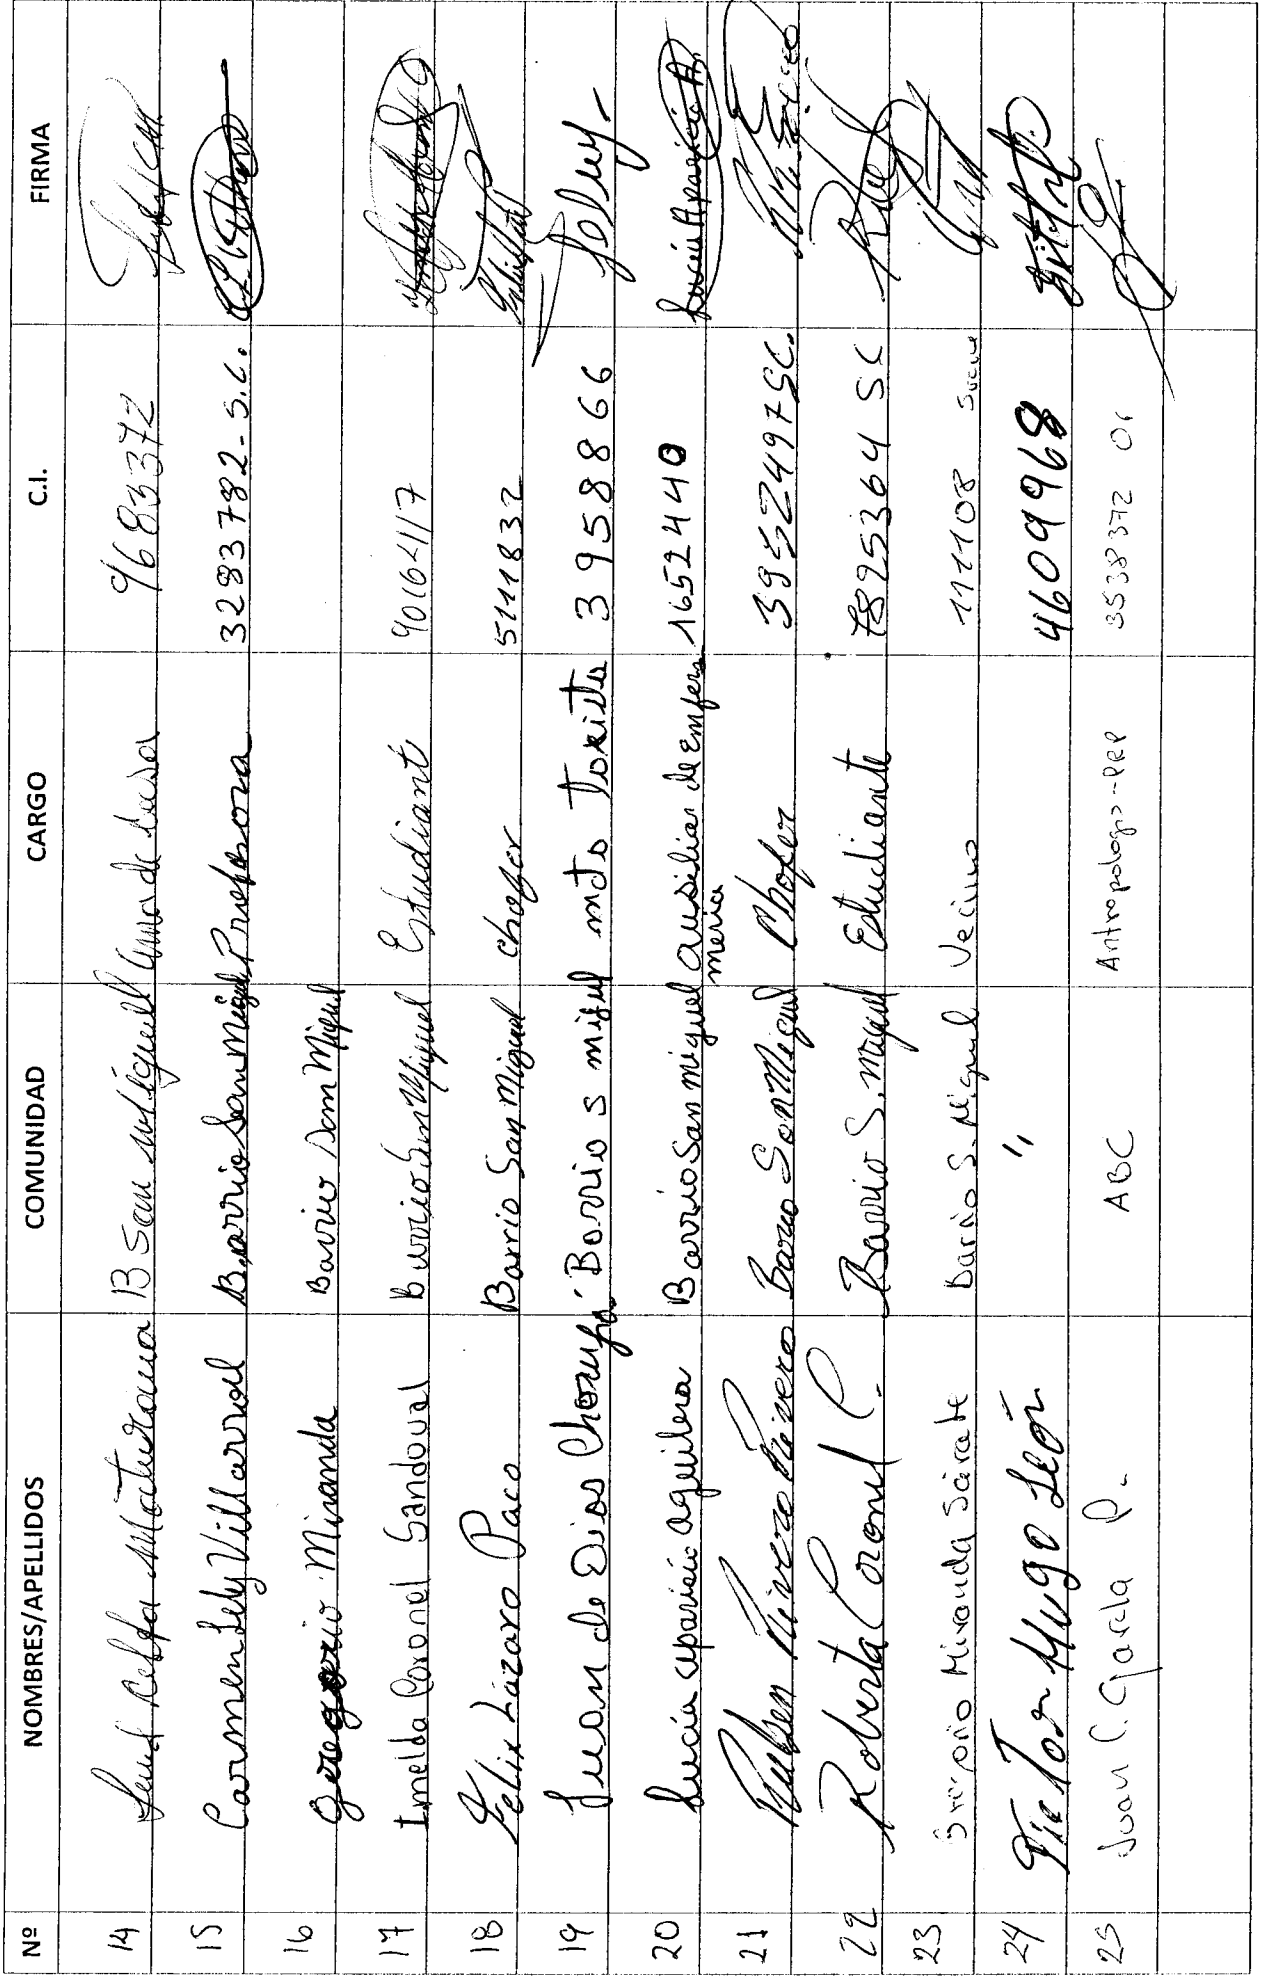 Nº NOMBRES/APELLIDOS COMUNIDAD CARGO C.I. FIRMA
14 Maturana B San Miguell ama de casa 9683372
15 Carmen Lely Villarroel Barrio San Miguel Profesora 3283782-S.C.
16 Gregorio Miranda Barrio San Miguel
17 Imelda Coronel Sandoval Barrio San Miguel Estudiant 90164117
18 Felix Lázaro Paco Barrio San Miguel chofor 5111832
19 Juan de Dios Barrio s migul moto Toxitto 3958866
20 Lucía aparicio aguilera Barrio San miguel ausiliar de enfer 1652440 Lucía Aparicio A.
meria
21 Ruben Rivero Rivero Barrio San Miguel Chofer 3952497 SC.
22 Roberta Coronel C. Barrio S. Miguel Estudiante 7895364 SC
23 Gregorio Miranda Sárate Barrio S. Miguel Vecino 111108 Sucre
24 Victor Hugo León " 4609968
25 Juan C. García P. ABC Antropologo-PRP 3538372 Or